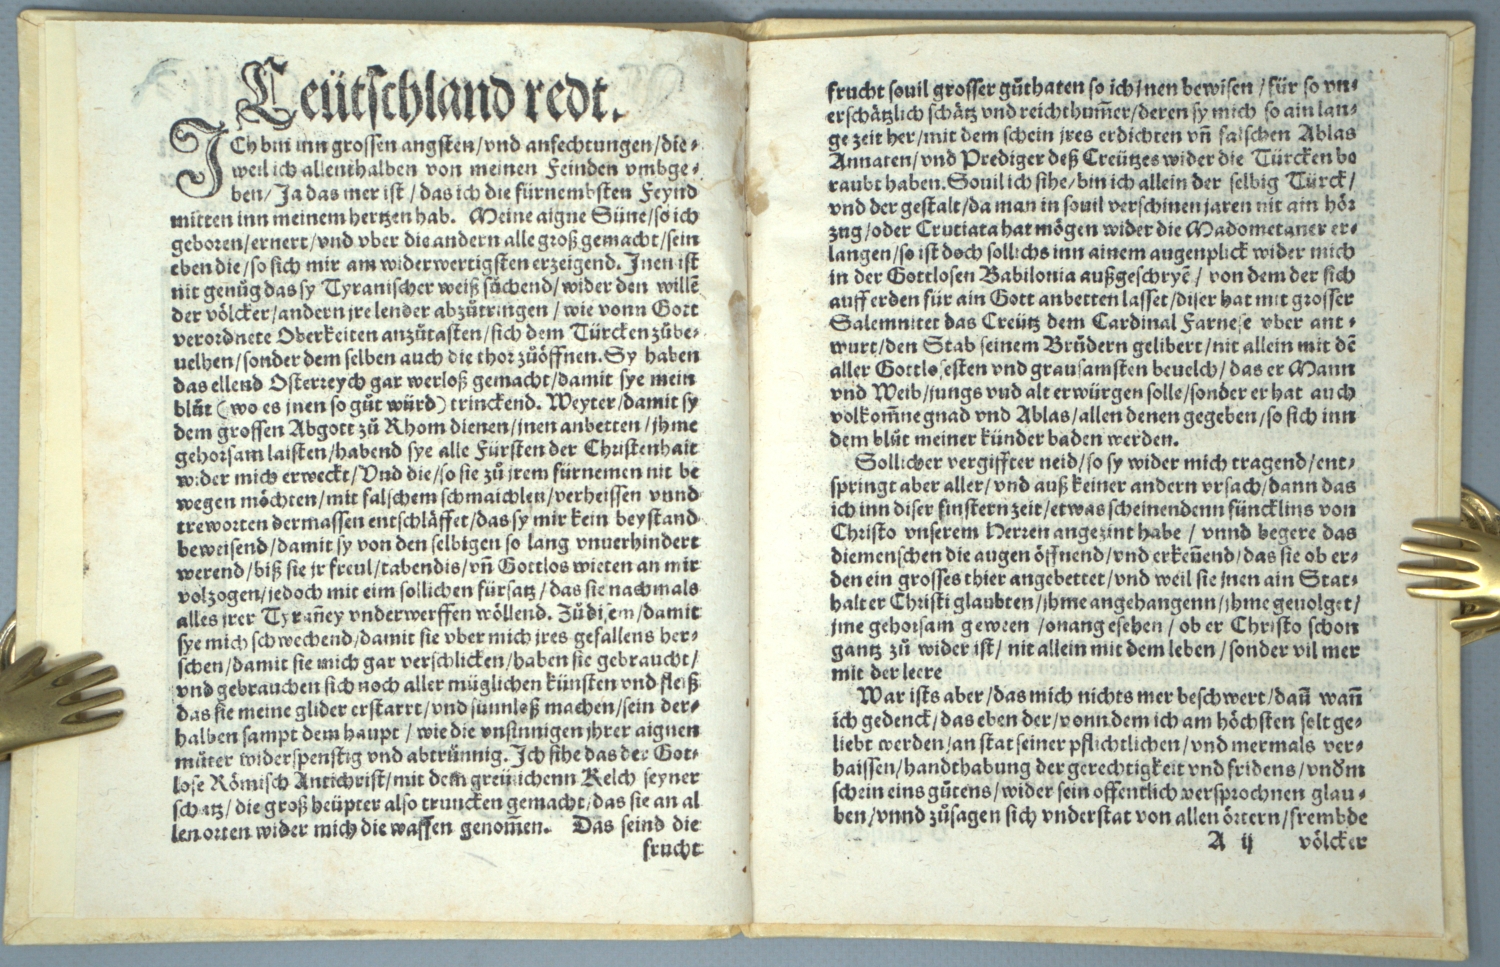 Teütschland redt.
ICh bin inn grossen angsten/vnd anfechtungen/die⸗
weil ich allenthalben von meinen Feinden vmbge⸗
ben/Ja das mer ist/das ich die fürnembsten Feynd
mitten inn meinem hertzen hab. Meine aigne Süne/so ich
geboren/ernert/vnd vber die andern alle groß gemacht/sein
eben die/so sich mir am widerwertigsten erzeigend. Jnen ist
nit genůg das sy Tyranischer weiß sůchend/wider den willē
der völcker/andern jre lender abzůtringen/wie vonn Gott
verordnete Oberkeiten anzůtasten/sich dem Türcken zůbe⸗
uelhen/sonder dem selben auch die thor zůöffnen. Sy haben
das ellend Osterreych gar werloß gemacht/damit sye mein
blůt (wo es jnen so gůt würd) trinckend. Weyter/damit sy
dem grossen Abgott zů Rhom dienen/jnen anbetten/jhme
gehorsam laisten/habend sye alle Fürsten der Christenhait
wider mich erweckt/Vnd die/so sie zů jrem fürnemen nit be
wegen möchten/mit falschem schmaichlen/verheissen vnnd
treworten dermassen entschläffet/das sy mir kein beystand
beweisend/damit sy von den selbigen so lang vnuerhindert
werend/biß sie jr freul/tabendis/vñ Gottlos wieten an mir
volzogen/jedoch mit eim sollichen fürsatz/das sie nachmals
alles jrer Tyrañey vnderwerffen wöllend. Zů disem/damit
sye mich schwechend/damit sie vber mich jres gefallens her⸗
schen/damit sie mich gar verschlicken/haben sie gebraucht/
vnd gebrauchen sich noch aller müglichen künsten vnd fleiß
das sie meine glider erstarrt/vnd sünnloß machen/sein der⸗
halben sampt dem haupt/wie die vnsinnigen jhrer aignen
můter widerspenstig vnd abtrünnig. Ich sihe das der Got⸗
lose Römisch Antichrist/mit dem greülichenn Kelch seyner
schatz/die groß heüpter also truncken gemacht/das sie an al
len orten wider mich die waffen genom̄en. Das seind die
frucht
frucht souil grosser gůthaten so ich jnen bewisen/für so vn⸗
erschätzlich schätz vnd reichthum̄er/deren sy mich so ain lan⸗
ge zeit her/mit dem schein jres erdichten vñ falschen Ablas
Annaten/vnd Prediger deß Creützes wider die Türcken be
raubt haben. Souil ich sihe/bin ich allein der selbig Türck/
vnd der gestalt/da man in souil verschinen jaren nit ain hör
zug/oder Cruciata hat mögen wider die Madometaner er⸗
langen/so ist doch sollichs inn ainem augenplick wider mich
in der Gottlosen Babilonia außgeschryē/von dem der sich
auff erden für ain Gott anbetten lasset/diser hat mit grosser
Salemnitet das Creütz dem Cardinal Farnese vber ant⸗
wurt/den Stab seinem Brůdern gelibert/nit allein mit dē
aller Gottlosesten vnd grausamsten beuelch/das er Mann
vnd Weib/jungs vnd alt erwürgen solle/sonder er hat auch
volkom̄ne gnad vnd Ablas/allen denen gegeben/so sich inn
dem blůt meiner künder baden werden.
Sollicher vergiffter neid/so sy wider mich tragend/ent⸗
springt aber aller/vnd auß keiner andern vrsach/dann das
ich inn diser finstern zeit/etwas scheinendenn füncklins von
Christo vnserem Herren angezint habe/vnnd begere das
die menschen die augen öffnend/vnd erkeñend/das sie ob er⸗
den ein grosses thier angebettet/vnd weil sie jnen ain Stat⸗
halter Christi glaubten/jhme angehangenn/jhme geuolget/
jme gehorsam gewesen/onangesehen/ob er Christo schon
gantz zů wider ist/nit allein mit dem leben/sonder vil mer
mit der leere
War ists aber/das mich nichts mer beschwert/dañ wañ
ich gedenck/das eben der/vonn dem ich am höchsten solt ge⸗
liebt werden/an stat seiner pflichtlichen/vnd mermals ver⸗
haissen/handthabung der gerechtigkeit vnd fridens/vnd̄m
schein eins gůtens/wider sein offentlich versprochnen glau⸗
ben/vnnd zůsagen sich vnderstat von allen örtern/frembde
A ij völcker